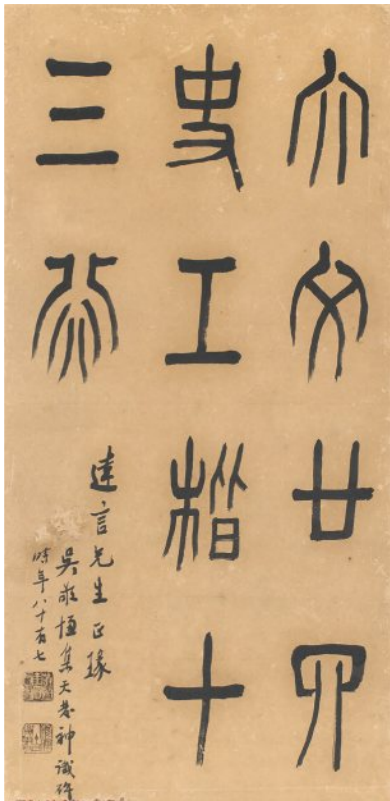 大文廿四
史工楷十
三示
達言先生正瑑
吳敬恆集天發神讖碑
時年八十有七